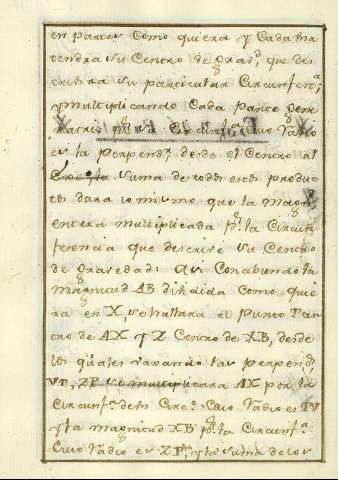 en partes como quiera y Cada una
tendra su Centro de grav.^d, que des
crivira su particular Circunfer.^a;
y multiplicando Cada parte gene
ratriz p.^r la Circunf.^a Cuio Radio
es la perpend.^r desde el Centro al
Exe, la suma de todos estos produc
tos dara lo mismo que la magn.^d
entera multiplicada p.^r la Circun
ferencia que descrive su Centro
de gravedad: Asi Conabiendo la
magnitud AB dibidida como quie
ra en X, se hallara el punto T cen
tro de AX y Z Centro de XB, desde
los quales vaxando las perpend.^s
VT, ZP se multiplicara AX por la
Circunf.^a de un Circ.^o Cuio Radio es TV
y la magnitud XB p.^r la Circunf.^a
Cuio Radio es ZP, y la suma de los